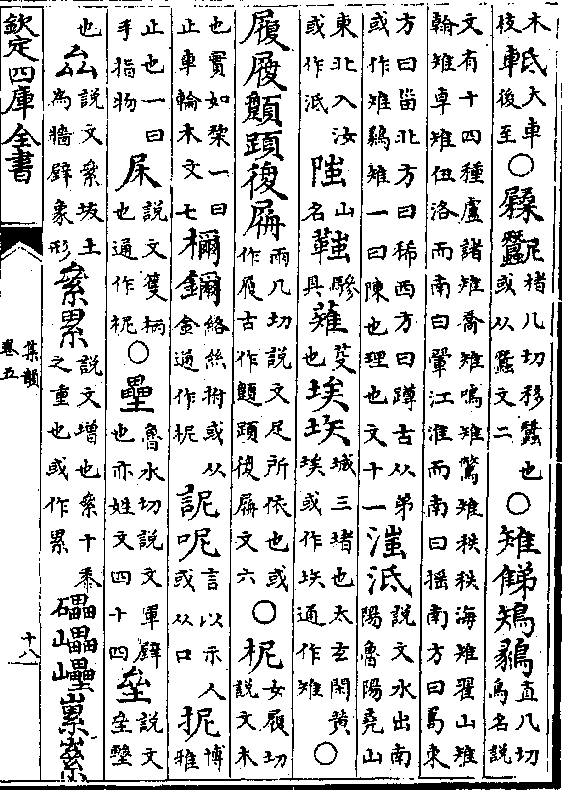 木枝軧大車後至○ 柅楮几切移蠶也或从蠶文二○雉鴙直几切鳥名說
文有十四種盧諸雉喬雉鳴雉鷩雉秩秩海雉翟山雉翰雉卓雉伊洛而南曰翬江淮而南曰搖南方曰𠷎東
方曰甾北方曰稀西方曰蹲古从弟或作雉一曰陳也理也文十一滍泜說文水出南陽魯陽堯山
東北入汝或作泜山名驂具薙芟也城三堵也太玄閑黃埃或作通作雉○
履兩几切說文足所依也或作履古作文六○柅女履切說文木
也實如棃一曰止車輪木文七檷鑈絡絲柎或从金通作柅呢言以示人或从口抳博雅
止也一曰手指物說文篗柄也通作柅○壘魯水切說文軍壁也亦姓文四十四垒說文垒墼
也厽說文絫坺土為牆壁象形絫累說文增也絫十黍之重也或作累礧
欽定四庫全書
集韻
卷五
十八